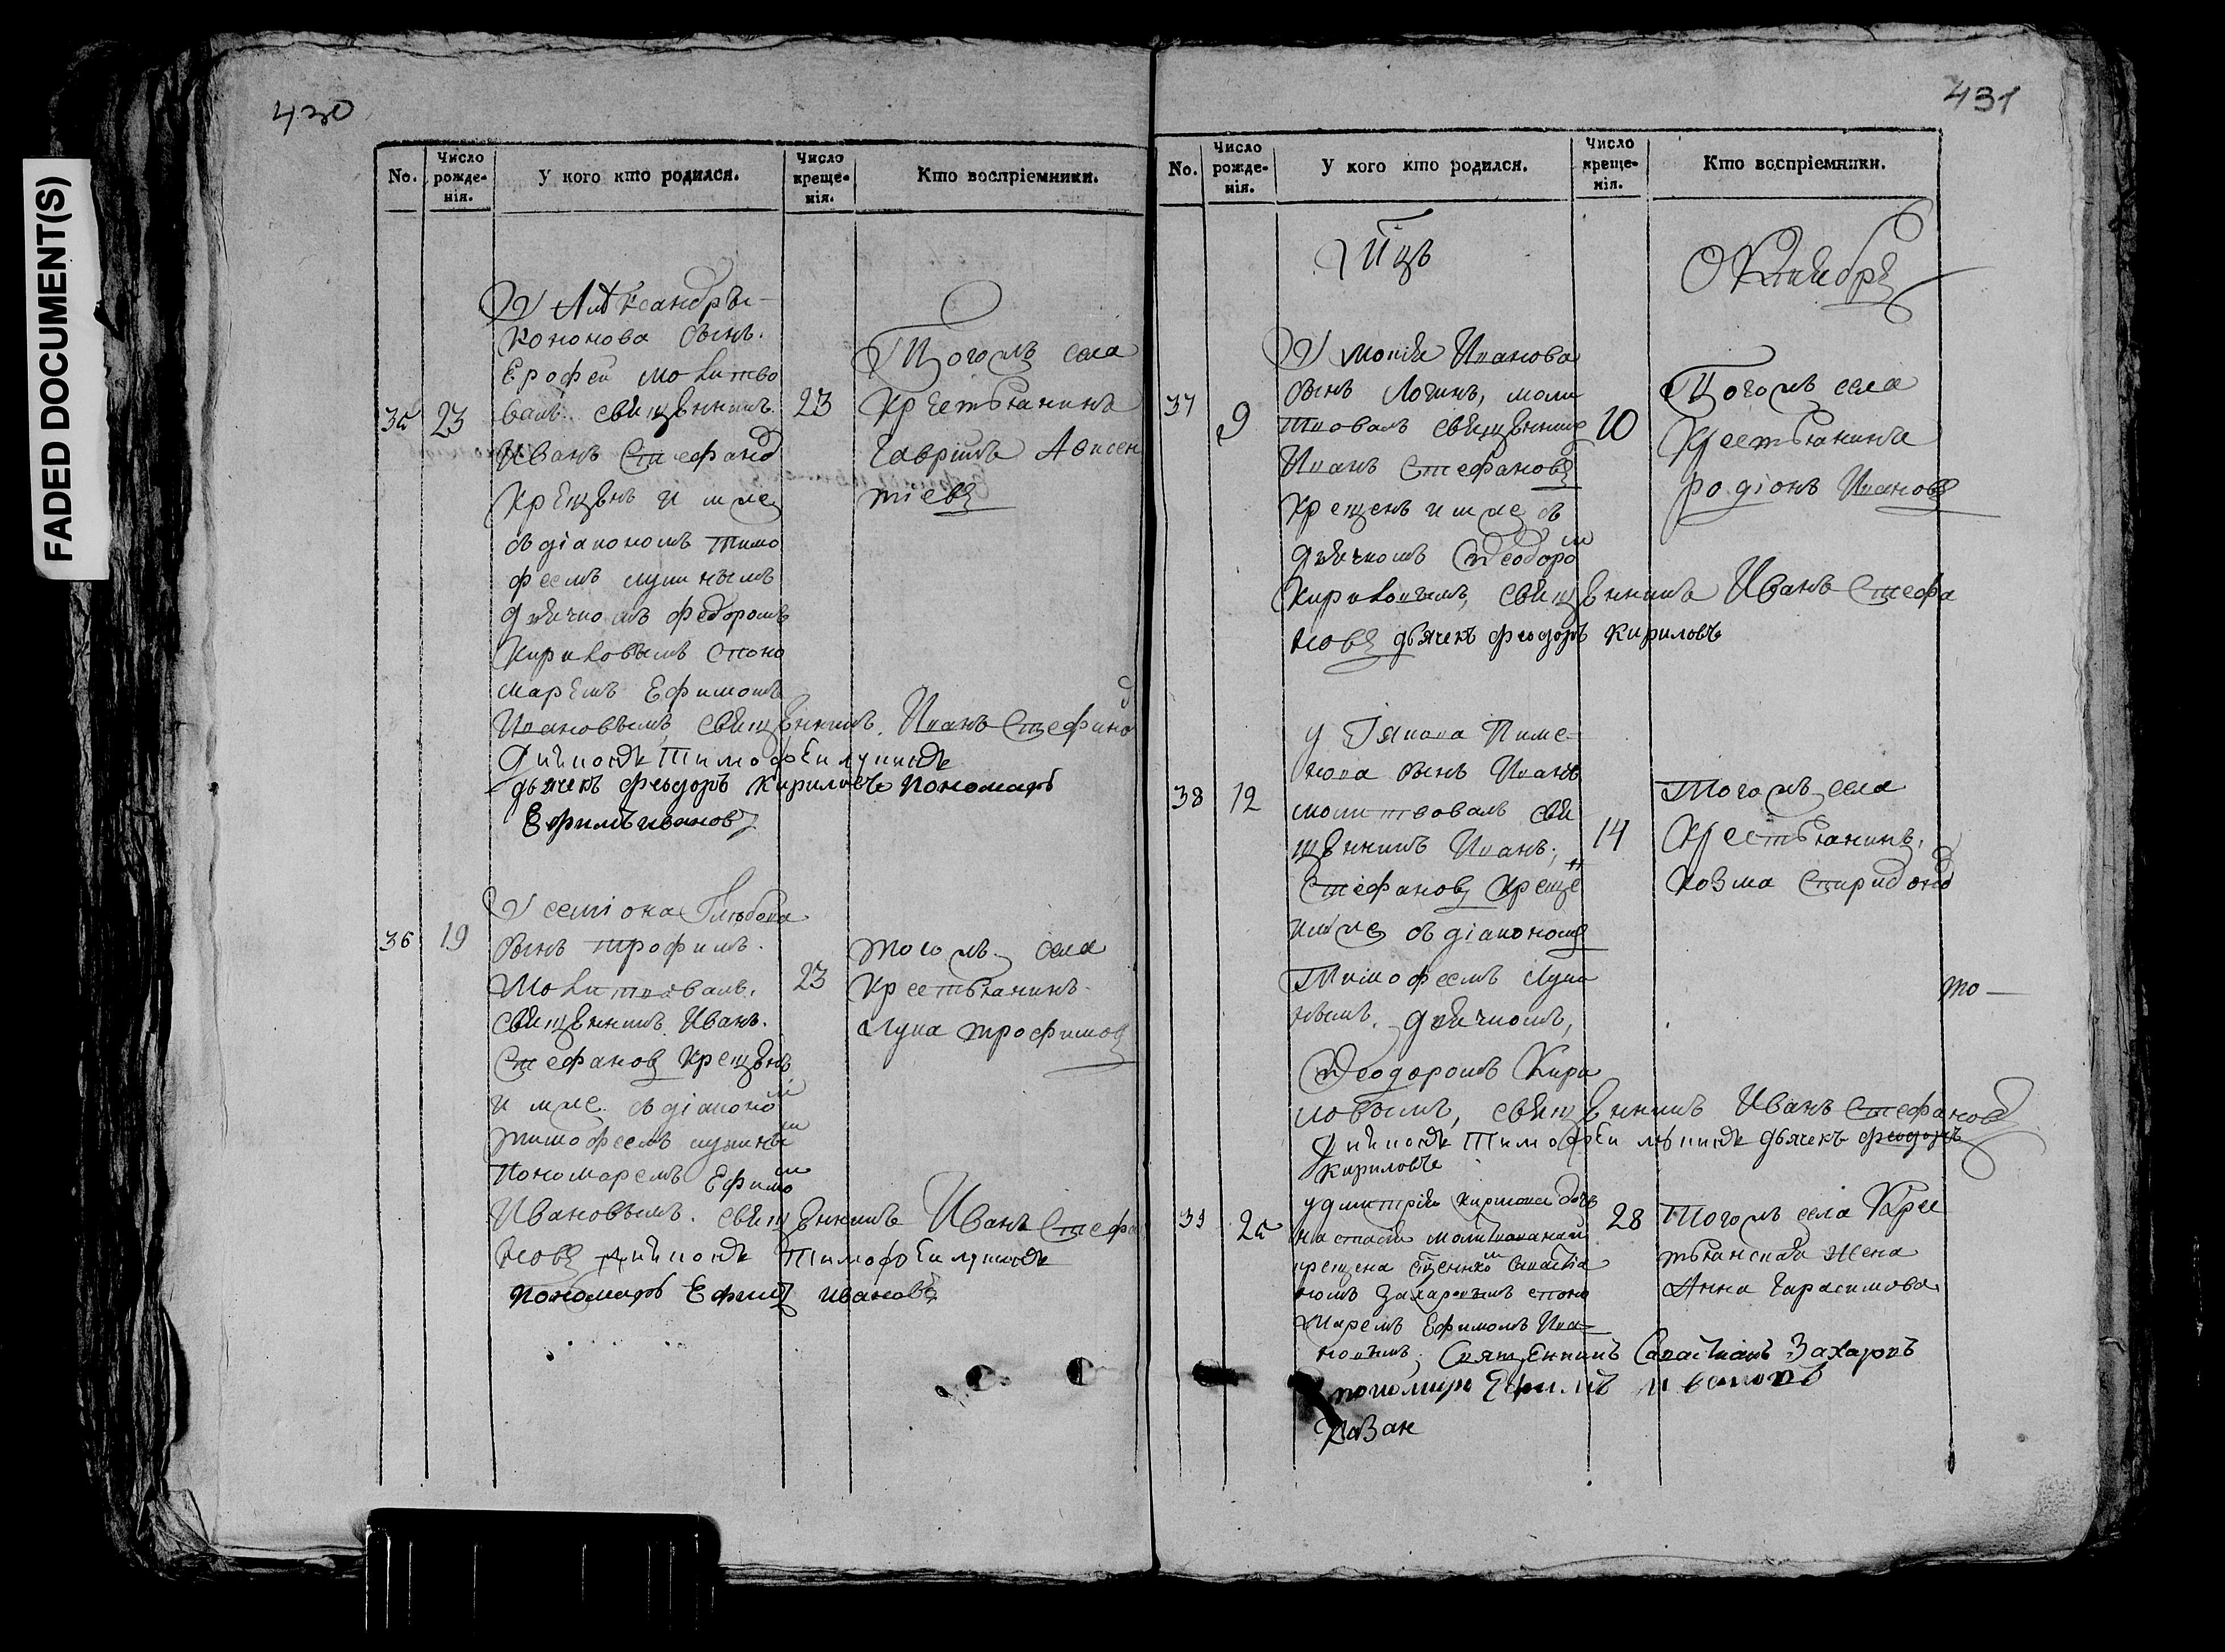 FADED DOCUMENT(S)
430
No.
Число рожде-нія.
У кого кто родился.
Число креще-нія.
Кто воспріемники.
У Александры
Кононова сынъ
Ерофей молитво
валъ священникъ
Иванъ Стефано
Крещенъ и имъ
съ діакономъ Тимо
феемъ лупинымъ
дьячкомъ федоромъ
Кириловымъ споно
маремъ Ефимомъ
Ивановымъ, священникъ Иванъ Стефано
Тимофеи
дьячекъ феодоръ Кириловъ пономарь
Ефимъ ивановъ
35
23
23
Тогожъ села
крестьянинъ
Гаврилъ Авксен
тіевъ
У семіона Глебова
сынъ трофимъ
Молитвовалъ
священникъ Иванъ
Стефановъ крещенъ
съ діаконо
тимофеемъ
пономаремъ Ефимо
Ивановымъ. священникъ Иванъ Стефа
новъ Тимофеи
пономарь Ефимъ ивановъ
36
19
23
тогожъ села
крестьянинъ
Лука трофимовъ
431
No.
Число рожде-нія.
У кого кто родился.
Число креще-нія.
Кто воспріемники.
Октября
У Мокія Иванова
сынъ Логинъ, моли
твовалъ священникъ
Иванъ Стефановъ
крещенъ съ
дьячкомъ Феодоро
Кириловымъ, священникъ Иванъ Стефа
новъ дьячекъ феодоръ Кириловъ
37
9
10
Тогожъ села
крестьянинъ
родіонъ Ивановъ
у Іякова Пиме
нова сынъ Иванъ
молитвовалъ свя
щенникъ Иванъ
Стефановъ креще
съ діакономъ
Тимофеемъ Лупи
нымъ, дьячкомъ,
Феодоромъ Кири
ловымъ, священникъ Иванъ Стефановъ
Тимофеи дьячекъ феодоръ
Кириловъ
38
12
14
Тогожъ села
крестьянинъ
Козма спиридоно
то
у димитрія дочь
настасія
крещена
Захаровымъ споно
маремъ Ефимомъ Ива
новымъ, Священникъ Захаровъ
пономарь Ефимъ Ивановъ
39
28
Тогожъ села Кре
стьянская жена
Анна Гарасимова